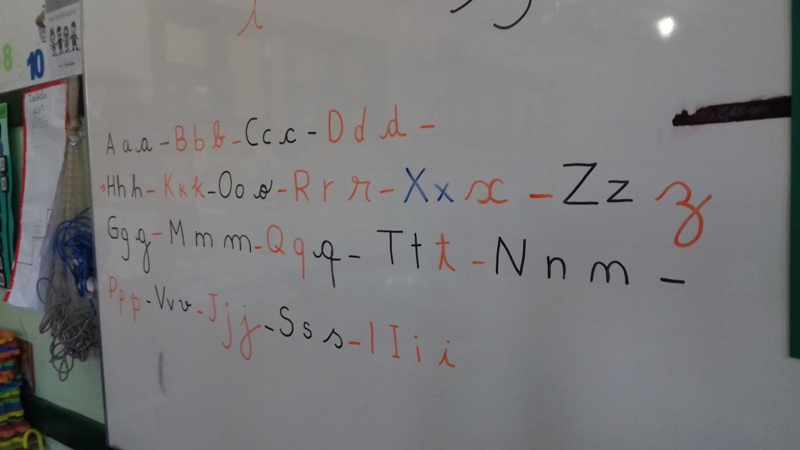 i
8
10
A a a - B b b - C c c - D d d -
H h h - K k k - O o o - R r r - X x x - Z z z
G g g - M m m - Q q q - T t t - N n n -
P p p - V v v - J j j - S s s - I I i i